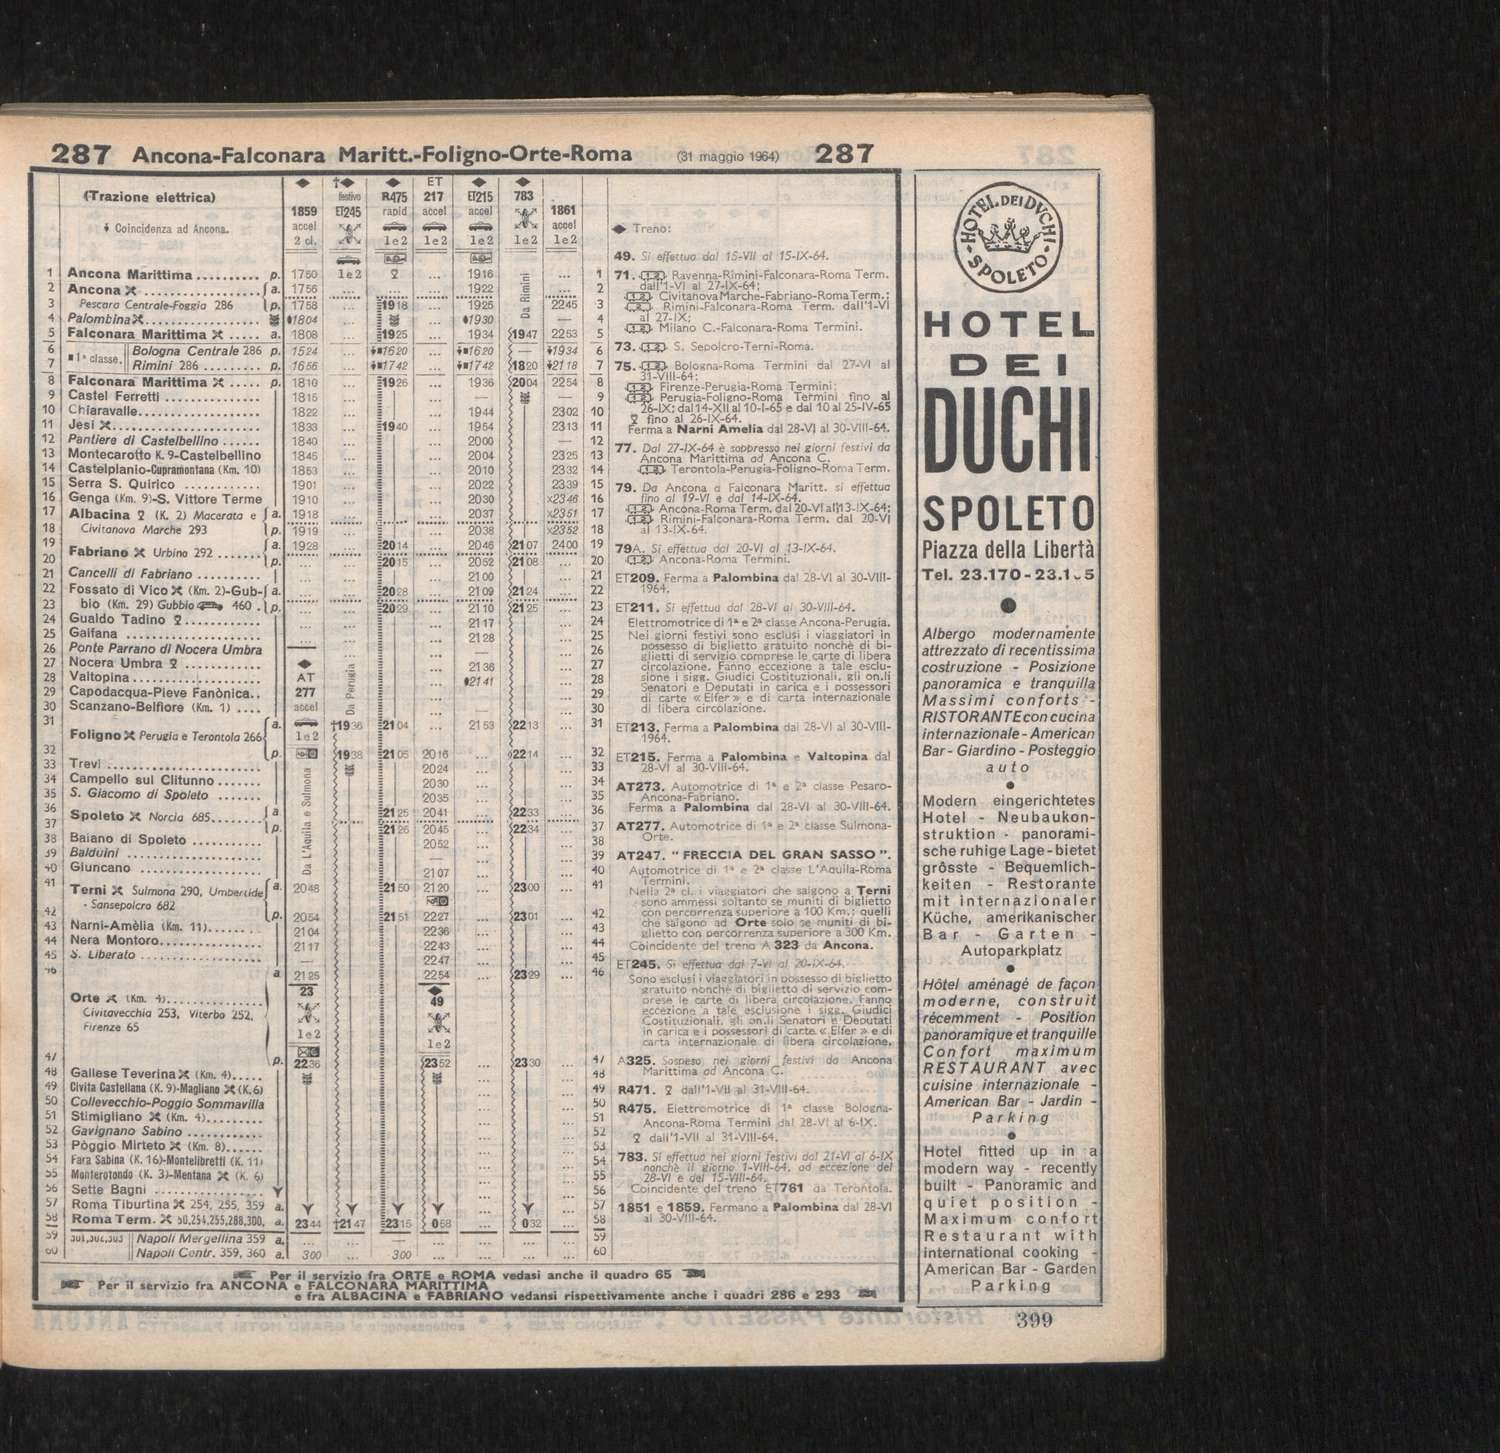 287 Ancona-Falconara Maritt.-Foligno-Orte-Roma (31 maggio 1964) 287
(Trazione elettrica)
Coincidenza ad Ancona.
1859 accel 2 cl.
festivo ET245
R475 rapid 1e2
ET 217 accel 1e2
ET215 accel 1e2
783 1e2
1861 accel 1e2
1 Ancona Marittima .......... p. 1750 1e2 ... 1916 ... 1
2 Ancona ............... a. 1756 ... ... ... 1922 ... 2
3 Pescara Centrale-Foggia 286 p. 1758 ... 1918 ... 1925 2245 3
4 Palombina............... 1804 ... ... 1930 — 4
5 Falconara Marittima ..... a. 1808 ... 1925 ... 1934 1947 2253 5
6 1ª classe. Bologna Centrale 286 p. 1524 ... 1620 ... 1620 — 1934 6
7 Rimini 286 ......... p. 1656 ... 1742 ... 1742 1820 2118 7
8 Falconara Marittima ..... p. 1810 ... 1926 ... 1936 2004 2254 8
9 Castel Ferretti ............ 1815 ... ... — — 9
10 Chiaravalle............... 1822 ... ... 1944 2302 10
11 Jesi .................. 1833 ... 1940 ... 1954 2313 11
12 Pantiere di Castelbellino ...... 1840 ... ... 2000 — 12
13 Montecarotto K. 9-Castelbellino 1845 ... ... 2004 2325 13
14 Castelplanio-Cupramontana (Km. 10) 1853 ... ... 2010 2332 14
15 Serra S. Quirico ............ 1901 ... ... 2022 2339 15
16 Genga (Km. 9)-S. Vittore Terme 1910 ... ... 2030 x2346 16
17 Albacina (K. 2) Macerata e a. 1918 ... ... 2037 x2351 17
18 Civitanova Marche 293 p. 1919 ... ... 2038 x2352 18
19 Fabriano Urbino 292 ....... a. 1928 ... 2014 ... 2046 2107 2400 19
20 p. ... ... 2015 ... 2052 2108 ... 20
21 Cancelli di Fabriano .......... ... ... ... 2100 ... 21
22 Fossato di Vico (Km. 2)-Gub- a. ... ... 2028 ... 2109 2124 ... 22
23 bio (Km. 29) Gubbio 460 . p. ... ... 2029 ... 2110 2125 ... 23
24 Gualdo Tadino ............ ... ... ... 2117 ... 24
25 Gaifana .................. ... ... ... 2128 ... 25
26 Ponte Parrano di Nocera Umbra ... ... — ... 26
27 Nocera Umbra ............ ... 2136 ... 27
28 Valtopina .................. AT ... 2141 ... 28
29 Capodacqua-Pieve Fanònica.. 277 ... — ... 29
30 Scanzano-Belfiore (Km. 1) .... accel ... — ... 30
Da Perugia
Da Rimini
31 Foligno Perugia e Terontola 266 a. 1936 2104 ... 2153 2213 ... 31
1e2
32 p. 1938 2105 2016 ... 2214 ... 32
33 Trevi ..................... 2024 ... ... 33
34 Campello sul Clitunno ....... 2030 ... ... 34
35 S. Giacomo di Spoleto ....... 2035 ... ... 35
Da L'Aquila e Sulmona
36 Spoleto Norcia 685....... a 2125 2041 ... 2233 ... 36
37 p. 2126 2045 ... 2234 ... 37
38 Baiano di Spoleto .......... 2052 ... ... 38
39 Balduini .................. — ... ... 39
40 Giuncano .................. 2107 ... ... 40
41 Terni Sulmona 290, Umbertide a. 2048 2150 2120 ... 2300 ... 41
- Sansepolcro 682
42 p. 2054 2151 2227 ... 2301 ... 42
43 Narni-Amèlia (Km. 11)..... 2104 2236 ... ... 43
44 Nera Montoro............... 2117 2243 ... ... 44
45 S. Liberato ............... — 2247 ... ... 45
46 a 2125 2254 ... 2329 ... 46
Orte (Km. 4)............... 23 49
Civitavecchia 253, Viterbo 252,
Firenze 65 1e2 1e2
47 p. 2236 2352 ... 2330 ... 47
48 Gallese Teverina (Km. 4)..... ... 48
49 Civita Castellana (K. 9)-Magliano (K.6) ... 49
50 Collevecchio-Poggio Sommavilla ... 50
51 Stimigliano (Km. 4)........ ... 51
52 Gavignano Sabino ............ ... 52
53 Pòggio Mirteto (Km. 8)..... ... 53
54 Fara Sabina (K. 16)-Montelibretti (K. 11) ... 54
55 Monterotondo (K. 3)-Mentana (K. 6) ... 55
56 Sette Bagni .................. ... 56
57 Roma Tiburtina 254, 255, 359 a. ... 57
58 Roma Term. 50,254,255,288,300, a. 2344 2147 2315 058 ... 032 ... 58
59 Napoli Mergellina 359 a. ... ... — ... ... ... ... 59
60 Napoli Centr. 359, 360 a. 300 ... 300 ... ... ... ... 60
Per il servizio fra ORTE e ROMA vedasi anche il quadro 65
Per il servizio fra ANCONA e FALCONARA MARITTIMA
e fra ALBACINA e FABRIANO vedansi rispettivamente anche i quadri 286 e 293
Treno:
49. Si effettua dal 15-VII al 15-IX-64.
71. Ravenna-Rimini-Falconara-Roma Term.
dall'1-VI al 27-IX-64;
Civitanova Marche-Fabriano-Roma Term.;
Rimini-Falconara-Roma Term. dall'1-VI
al 27-IX;
Milano C.-Falconara-Roma Termini.
73. S. Sepolcro-Terni-Roma.
75. Bologna-Roma Termini dal 27-VI al
31-VIII-64;
Firenze-Perugia-Roma Termini;
Perugia-Foligno-Roma Termini fino al
26-IX; dal 14-XII al 10-I-65 e dal 10 al 25-IV-65
fino al 26-IX-64.
Ferma a Narni Amelia dal 28-VI al 30-VIII-64.
77. Dal 27-IX-64 è soppresso nei giorni festivi da
Ancona Marittima ad Ancona C.
Terontola-Perugia-Foligno-Roma Term.
79. Da Ancona a Falconara Maritt. si effettua
fino al 19-VI e dal 14-IX-64.
Ancona-Roma Term. dal 20-VI al 13-IX-64;
Rimini-Falconara-Roma Term. dal 20-VI
al 13-IX-64.
79A. Si effettua dal 20-VI al 13-IX-64.
Ancona-Roma Termini.
ET209. Ferma a Palombina dal 28-VI al 30-VIII-
1964.
ET211. Si effettua dal 28-VI al 30-VIII-64.
Elettromotrice di 1ª e 2ª classe Ancona-Perugia.
Nei giorni festivi sono esclusi i viaggiatori in
possesso di biglietto gratuito nonchè di bi-
glietti di servizio comprese le carte di libera
circolazione. Fanno eccezione a tale esclu-
sione i sigg. Giudici Costituzionali, gli on.li
Senatori e Deputati in carica e i possessori
di carte « Elfer » e di carta internazionale
di libera circolazione.
ET213. Ferma a Palombina dal 28-VI al 30-VIII-
1964.
ET215. Ferma a Palombina e Valtopina dal
28-VI al 30-VIII-64.
AT273. Automotrice di 1ª e 2ª classe Pesaro-
Ancona-Fabriano.
Ferma a Palombina dal 28-VI al 30-VIII-64.
AT277. Automotrice di 1ª e 2ª classe Sulmona-
Orte.
AT247. " FRECCIA DEL GRAN SASSO ".
Automotrice di 1ª e 2ª classe L'Aquila-Roma
Termini.
Nella 2ª cl. i viaggiatori che salgono a Terni
sono ammessi soltanto se muniti di biglietto
con percorrenza superiore a 100 Km.; quelli
che salgono ad Orte solo se muniti di bi-
glietto con percorrenza superiore a 300 Km.
Coincidente del treno A 323 da Ancona.
ET245. Si effettua dal 7-VI al 20-IX-64.
Sono esclusi i viaggiatori in possesso di biglietto
gratuito nonchè di biglietto di servizio com-
prese le carte di libera circolazione. Fanno
eccezione a tale esclusione i sigg. Giudici
Costituzionali, gli on.li Senatori e Deputati
in carica e i possessori di carte « Elfer » e di
carta internazionale di libera circolazione.
A325. Sospeso nei giorni festivi da Ancona
Marittima ad Ancona C.
R471. dall'1-VII al 31-VIII-64.
R475. Elettromotrice di 1ª classe Bologna-
Ancona-Roma Termini dal 28-VI al 6-IX.
dall'1-VII al 31-VIII-64.
783. Si effettua nei giorni festivi dal 21-VI al 6-IX
nonchè il giorno 1-VIII-64, ad eccezione del
28-VI e del 15-VIII-64.
Coincidente del treno ET761 da Terontola.
1851 e 1859. Fermano a Palombina dal 28-VI
al 30-VIII-64.
HOTEL DEI DVCHI SPOLETO
HOTEL
DEI
DUCHI
SPOLETO
Piazza della Libertà
Tel. 23.170-23.1
Albergo modernamente
attrezzato di recentissima
costruzione - Posizione
panoramica e tranquilla
Massimi conforts -
RISTORANTE con cucina
internazionale - American
Bar - Giardino - Posteggio
auto
Modern eingerichtetes
Hotel - Neubaukon-
struktion - panorami-
sche ruhige Lage - bietet
grösste - Bequemlich-
keiten - Restorante
mit internazionaler
Küche, amerikanischer
Bar - Garten -
Autoparkplatz
Hôtel aménagé de façon
moderne, construit
récemment - Position
panoramique et tranquille
Confort maximum
RESTAURANT avec
cuisine internazionale -
American Bar - Jardin -
Parking
Hotel fitted up in a
modern way - recently
built - Panoramic and
quiet position -
Maximum confort
Restaurant with
international cooking -
American Bar - Garden
Parking
399